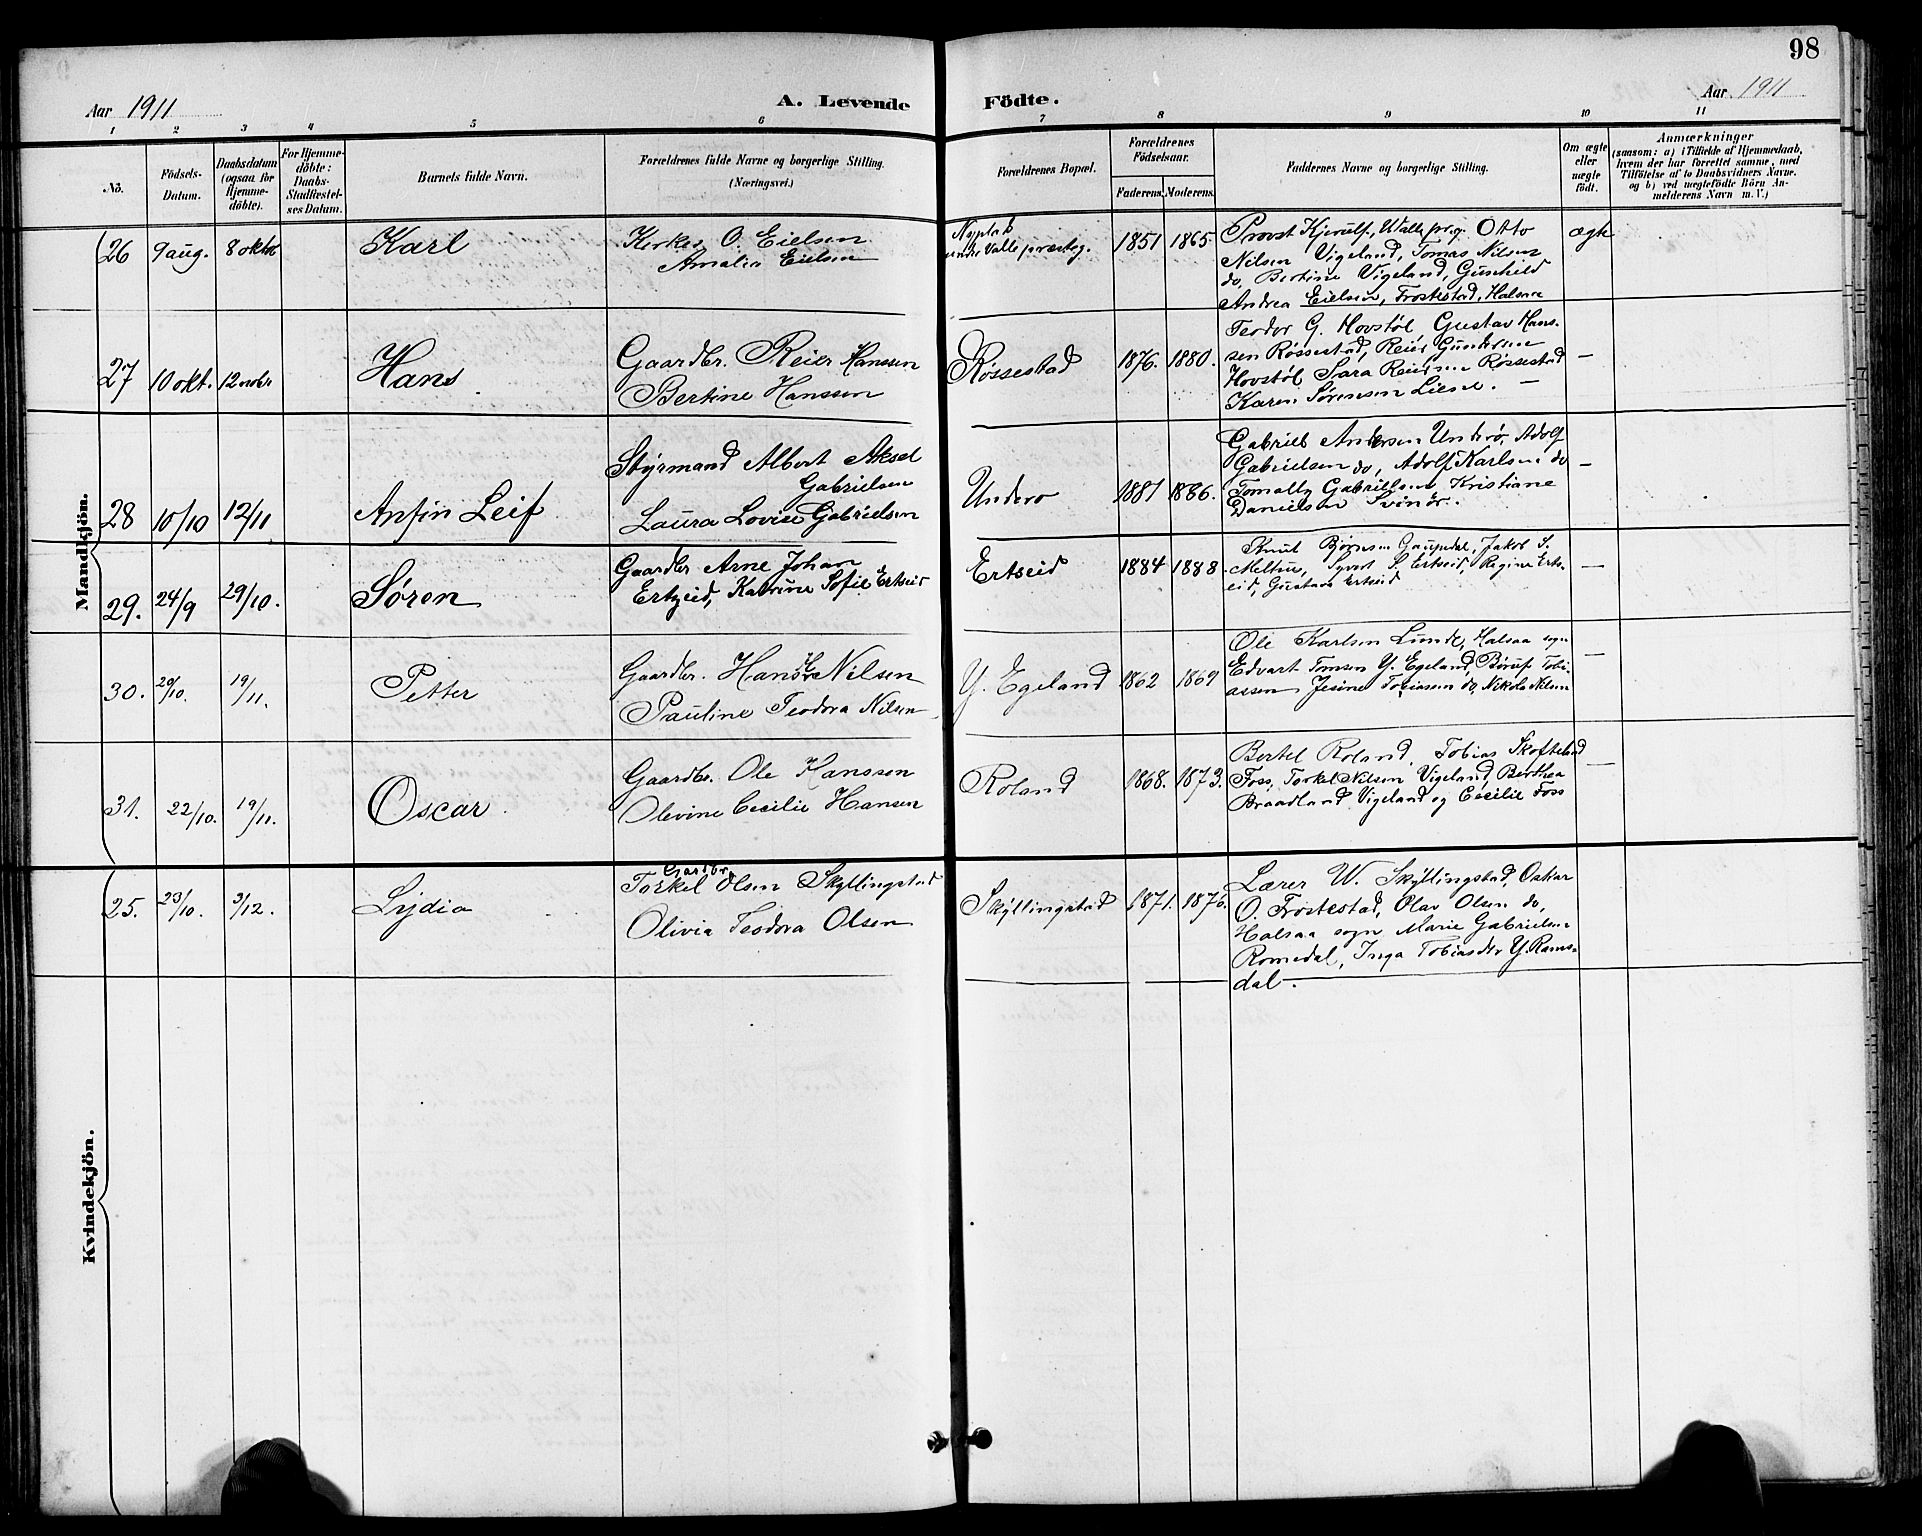 98
Aar 1911
A. Levende Födte.
Aar 1911
1 2 3 4 5 6 7 8 9 10 11
No.
Födsels-
Datum.
Daabsdatum
(ogsaa for
Hjemme-
döbte).
For Hjemme-
döbte:
Daabs-
Stadfæstel-
ses Datum.
Barnets fulde Navn.
Forældrenes fulde Navne og borgerlige Stilling.
(Næringsvei.)
Forældrenes Bopæl.
Forældrenes
Födselsaar.
Faderens. Moderens.
Faddernes Navne og borgerlige Stilling.
Om ægte
eller
uægte
født.
Anmærkninger
(saasom: a) i Tilfælde af Hjemmedaab,
hvem der har forrettet samme, med
Tilföielse af to Daabsvidners Navne,
og b) ved uægtefödte Börn An-
melderens Navn m. V.)
Mandkjön.
26 9 aug. 8 oktbr Karl
O. Eielsen
Amalia Eielsen
Nyplads
undre Valle præsteg.
1851 1865.
Provst Kjerulf, Valle pr.g. Otto
Nilsen Vigeland, Tomas Nilsen
do, Bertine Vigeland, Gunhild
Andrea Eielsen, Frostestad, Halsaa
ægte
27 10 okt. 12 novbr Hans
Gaardbr. Reier Hanssen
Bertine Hanssen
Røssestad
1876. 1880.
Teodor G. Hovstøl, Gustav Hans-
sen Røssestad, Reier Gundersen
Hovstøl Sara Reiersen Røssestad
Karen Sørensen Liene. —
—
28 10/10 12/11 Anfin Leif
Styrmand Albert Aksel
Gabrielsen
Laura Lovise Gabrielsen
Underø
1881 1886.
Gabriel Andersen Underø, Adolf
Gabrielsen do, Adolf Karlsen do
Gabrielsen, Kristiane
Danielsen Svinør.
—
29. 24/9 29/10. Søren
Gaardbr Arne Johan
Ertzeid, Katrine Sofie Ertseid
Ertseid
1884 1888
Knut Gaupdal, Jakob S.
S. Ertseid, Regine Ert-
eid, Gustava Ertseid
—
30. 29/10. 19/11. Petter
Gaardbr. Hans Nilsen
Pauline Teodora Nilsen
Y. Egeland
1862 1869
Ole Karlsen Lunde, Halsaa sogn
Edvart Tomsen Y. Egeland, Tobi-
assen Jesine Tobiasen do, Nikola Nilsen
—
31. 22/10. 19/11. Oscar
Gaardbr. Ole Hanssen
Olevine Cecilie Hansen
Roland
1868. 1873.
Bertel Roland, Tobias Skofteland
Foss, Torkel Nilsen Vigeland, Berthea
Braadland, Vigeland og Cecilie Foss
—
Kvindekjön.
25. 23/10. 3/12. Lydia
Gaardbr
Torkel Olsen Skyllingstad
Olivia Teodora Olsen
Skyllingstad
1871. 1876.
Lærer W. Skyllingstad, Oskar
O. Frostestad, Olav Olsen do,
Halsaa sogn Marie Gabrielsen
Romedal, Inga Tobiasdtr Y. Roms-
dal.